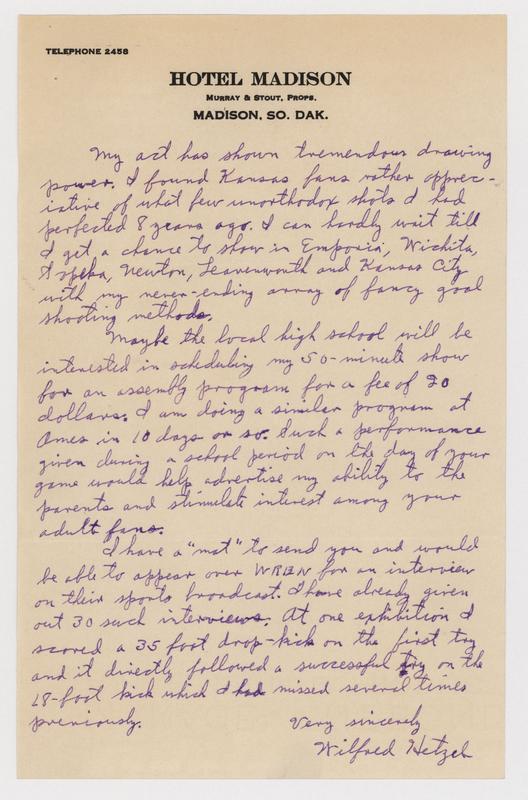 TELEPHONE 2458
HOTEL MADISON
MURRAY & STOUT, PROPS.
MADISON, SO. DAK.
My act has shown tremendous drawing
power. I found Kansas fans rather apprec-
iative of what few unorthodox shots I had
perfected 8 years ago. I can hardly wait till
I get a chance to show in Emporia, Wichita,
Topeka, Newton, Leavenworth and Kansas City
with my never-ending array of fancy goal
shooting methods.
Maybe the local high school will be
interested in scheduling my 50-minute show
for an assembly program for a fee of 20
dollars. I am doing a similar program at
Ames in 10 days or so. Such a performance
given during a school period on the day of your
game would help advertise my ability to the
parents and stimulate interest among your
adult fans.
I have a "mat" to send you and would
be able to appear over WREN for an interview
on their sports broadcast. I have already given
out 30 such interviews. At one exhibition I
scored a 35 foot drop-kick on the first try
and it directly followed a successful try on the
28-foot kick which I had missed several times
previously.
Very sincerely
Wilfred Hetzel